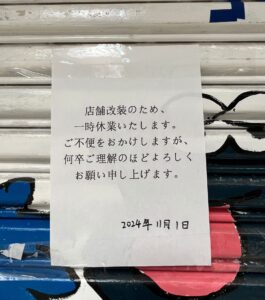 店舗改装のため、
一時休業いたします。
ご不便をおかけしますが、
何卒ご理解のほどよろしく
お願い申し上げます。
2024年11月1日